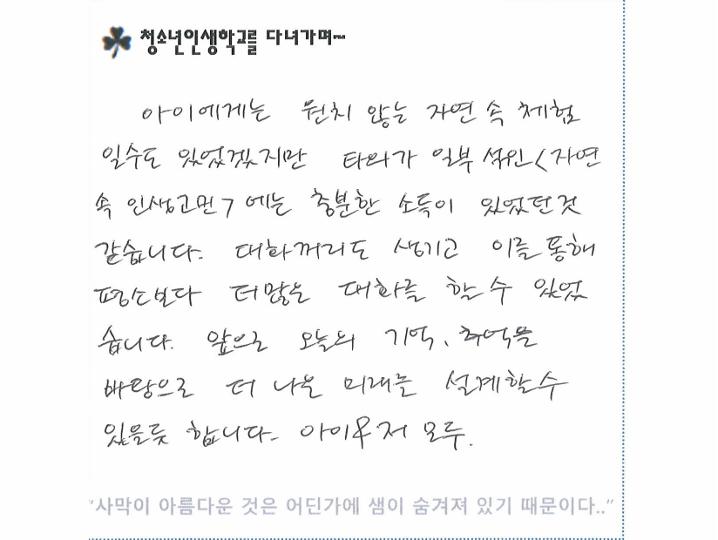 청소년인생학교를 다녀가며~
아이에게는 원치 않는 자연 속 체험
일수도 있었겠지만 타의가 일부 섞인 <자연
속 인생고민> 에는 충분한 소득이 있었던것
같습니다. 대화꺼리도 생기고 이를 통해
평소보다 더많은 대화를 할 수 있었
습니다. 앞으로 오늘의 기억, 추억을
바탕으로 더 나은 미래를 설계할수
있을듯 합니다. 아이와 저 모두.
“사막이 아름다운 것은 어딘가에 샘이 숨겨져 있기 때문이다..”